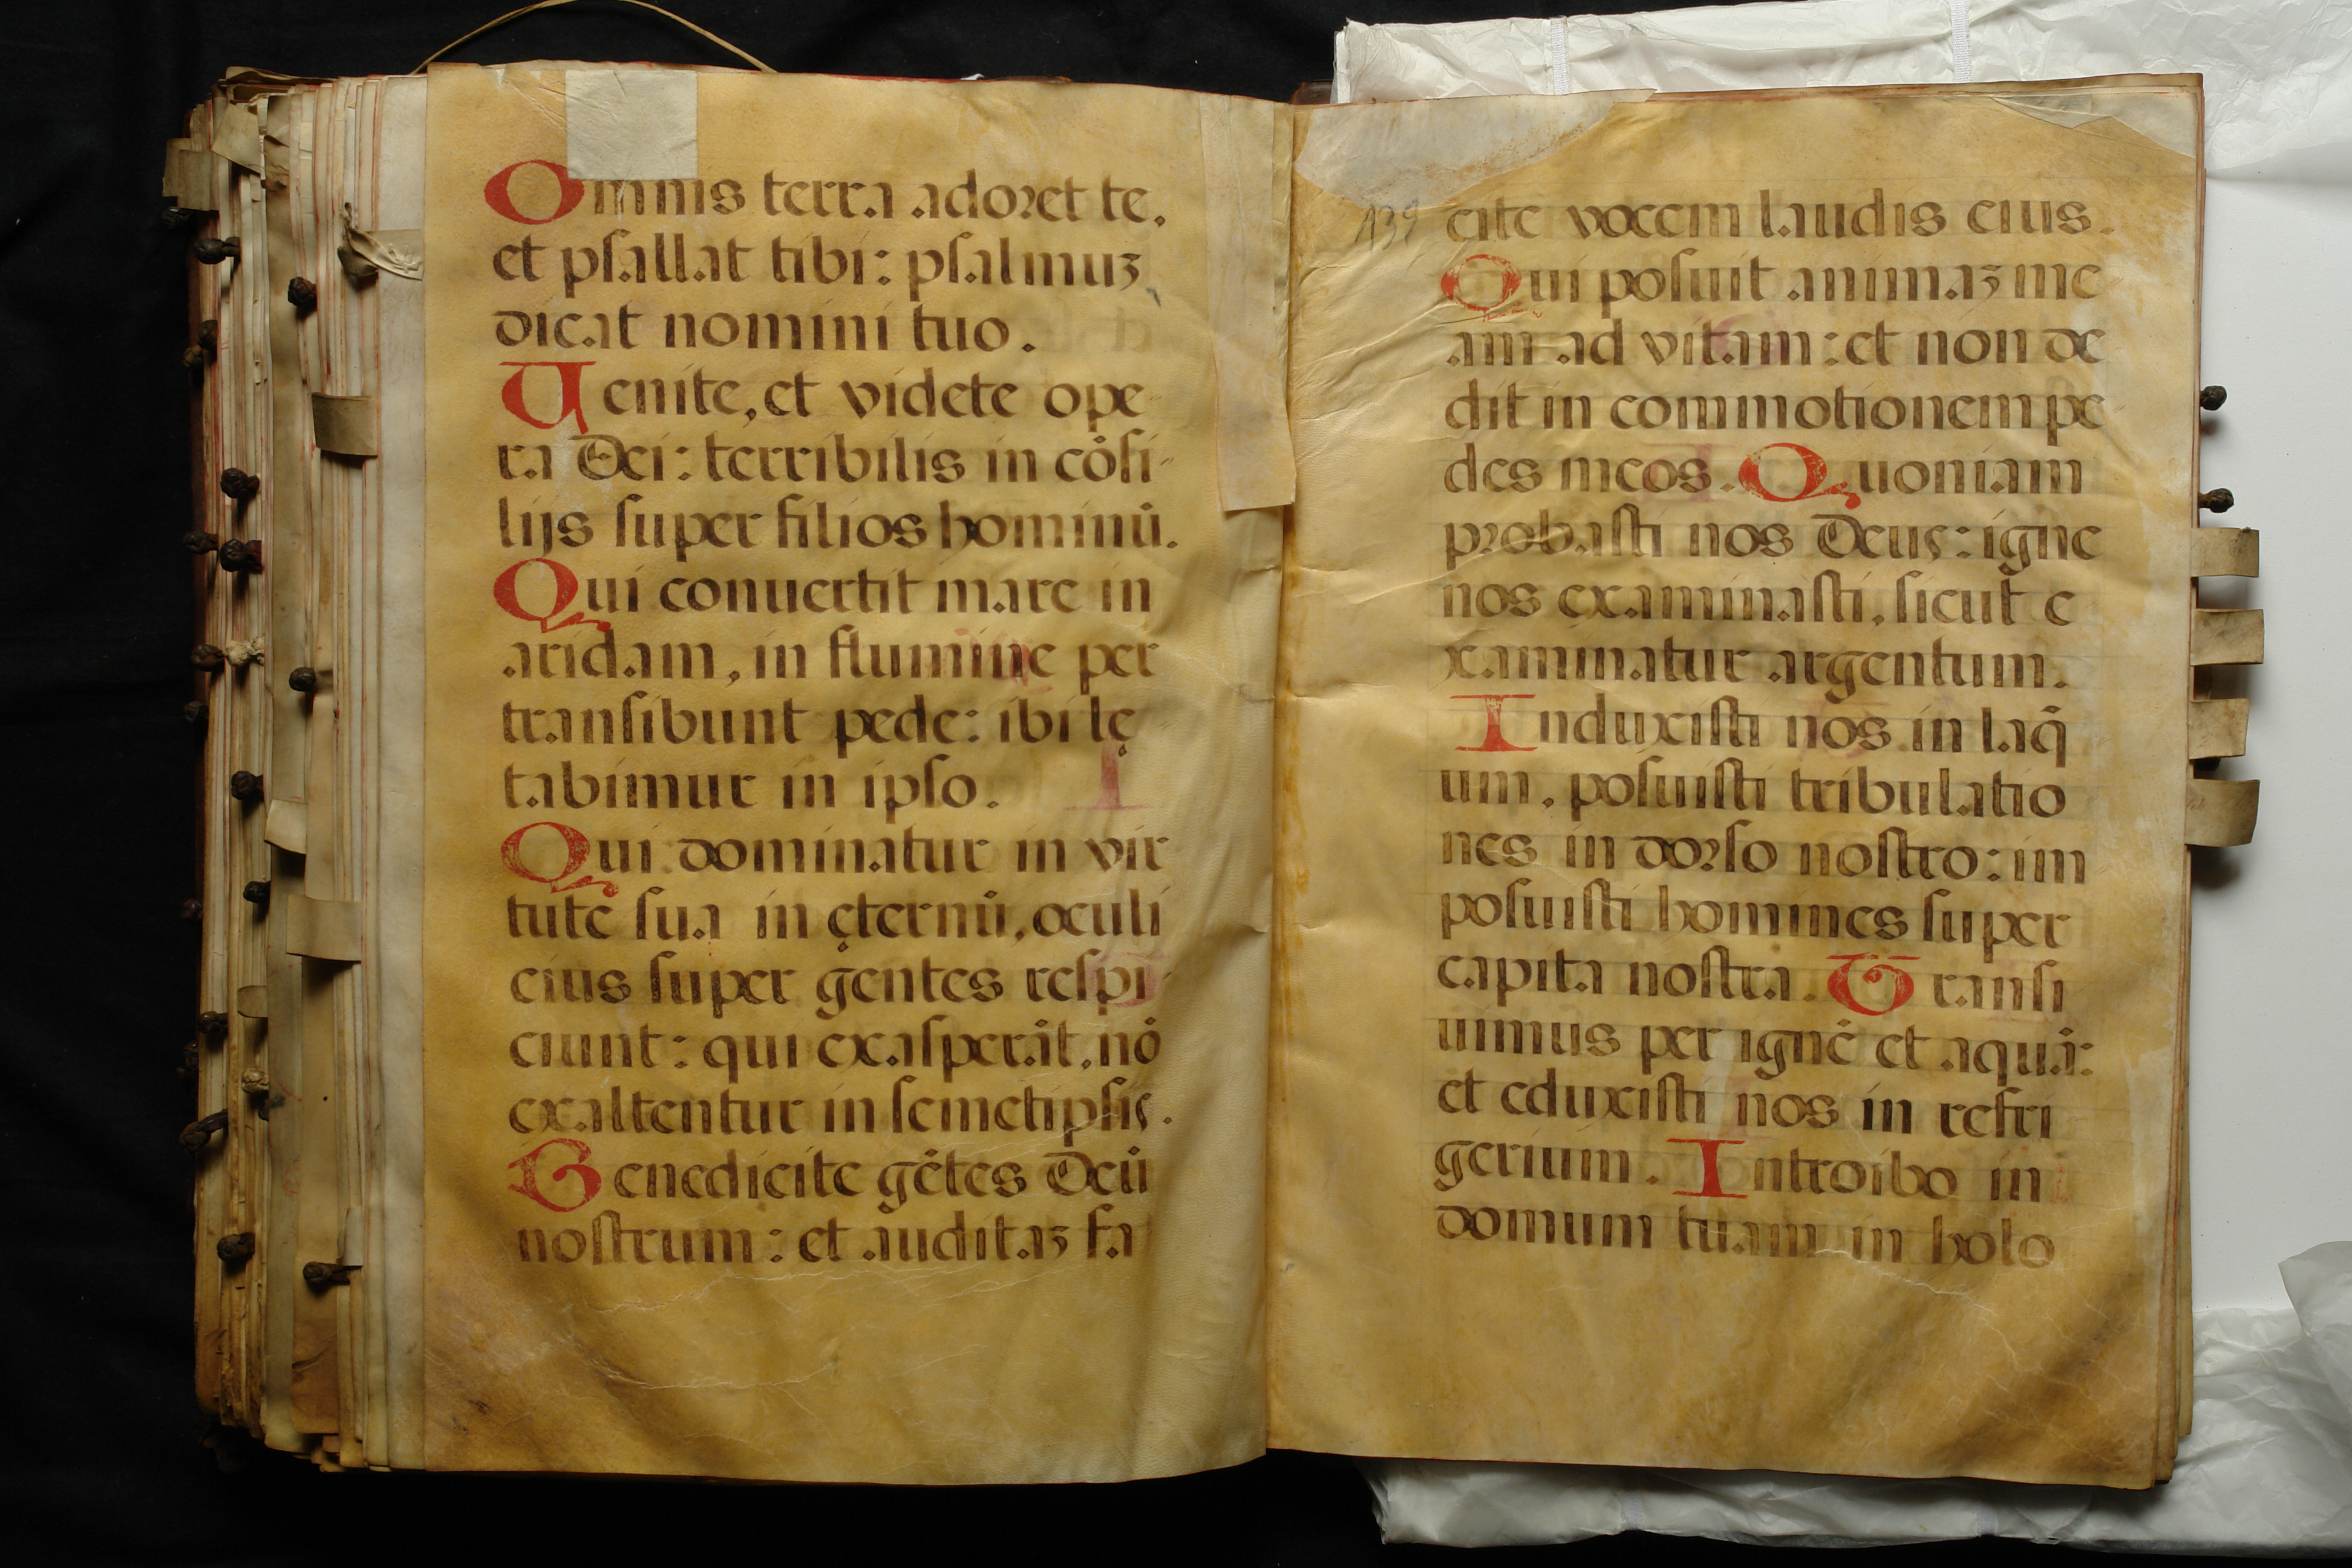 Omnis terra adoret te,
et psallat tibi: psalmuʒ
dicat nomini tuo.
Uenite, et videte ope
ra Dei: terribilis in cõsi-
lijs super filios hominũ.
Qui conuertit mare in
aridam, in flumine per
transibunt pede: ibi lę
tabimur in ipso.
Qui dominatur in vir
tute sua in ęternũ, oculi
eius super gentes respi-
ciunt: qui exasperãt, nõ
exaltentur in semetipsis.
Benedicite gẽtes Deũ
nostrum: et auditaʒ fa
139
cite vocem laudis eius.
Qui posuit animaʒ me
am ad vitam: et non de
dit in commotionem pe
des meos. Quoniam
probasti nos Deus: igne
nos examinasti, sicut e
xaminatur argentum.
Induxisti nos in laq̃
um, posuisti tribulatio
nes in dorso nostro: im
posuisti homines super
capita nostra. Transi
uimus per ignẽ et aquã:
et eduxisti nos in refri
gerium. Introibo in
domum tuam in holo